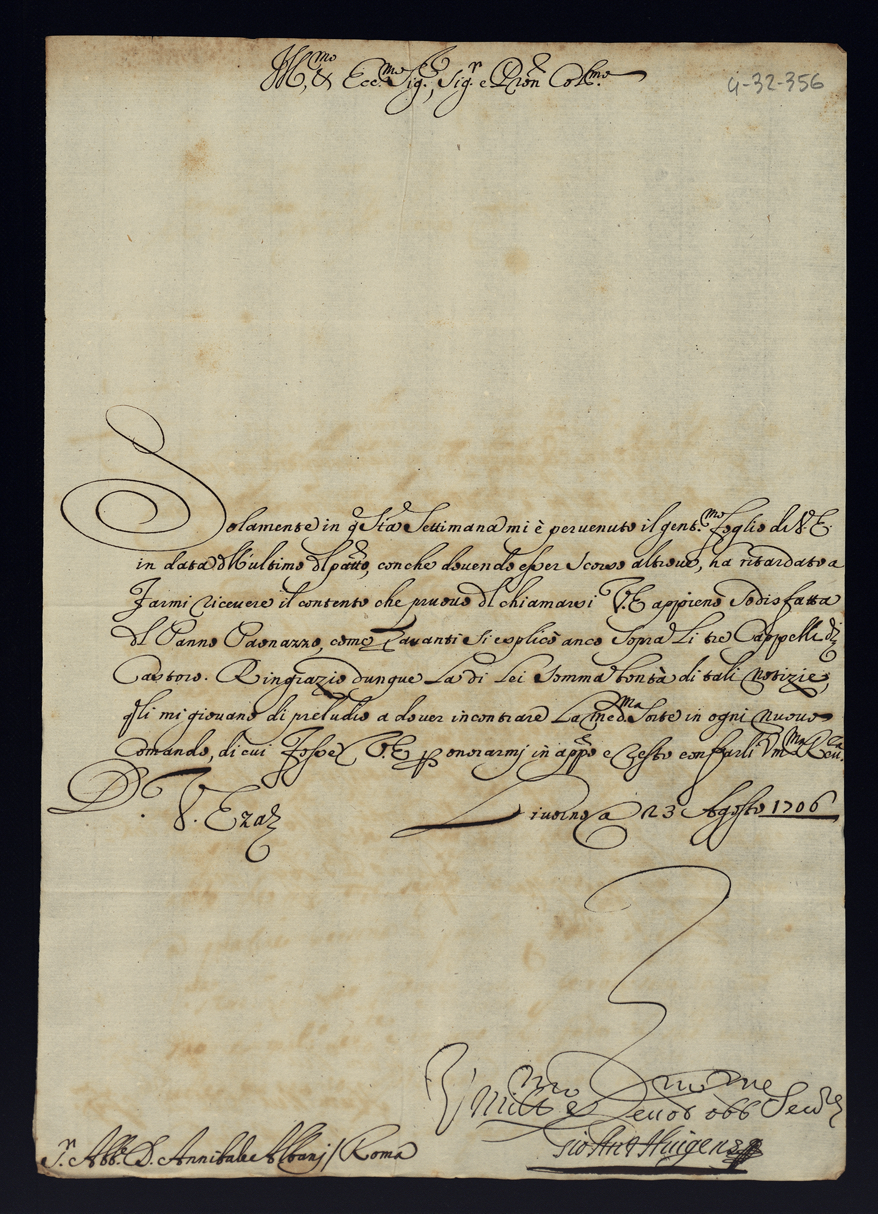 Ill.mo, & Ecc.mo Sig.r, Sig.r e Pron Col.mo
4-32-356
Solamente in q.sta Settimana mi è pervenuto il gent.mo foglio di V.E.
in data dell'ultimo del patto, con che dovendo esser scorso altrove, ha ritardato a
farmi ricevere il contento che pruovo del chiamarsi V.E. appieno sodisfatta
del Panno Paonazzo, come avanti si esplicò anco sopra li tre Cappelli di
Castoro. Ringrazio dunque la di Lei somma bontà di tali notizie,
q.li mi giovano di preludio a dover incontrare la med.ma sorte in ogni nuovo
Comando, di cui V.E. onorarmi in app.o e resto con farli Um.ma Reu.za
D. V. Ecza
Livorno a 23 Agosto 1706
Umill.mo e Devot.mo obb.mo Seru.re
Gio Ant Huigens
S.r Abb.e D. Annibale Albanj / Roma